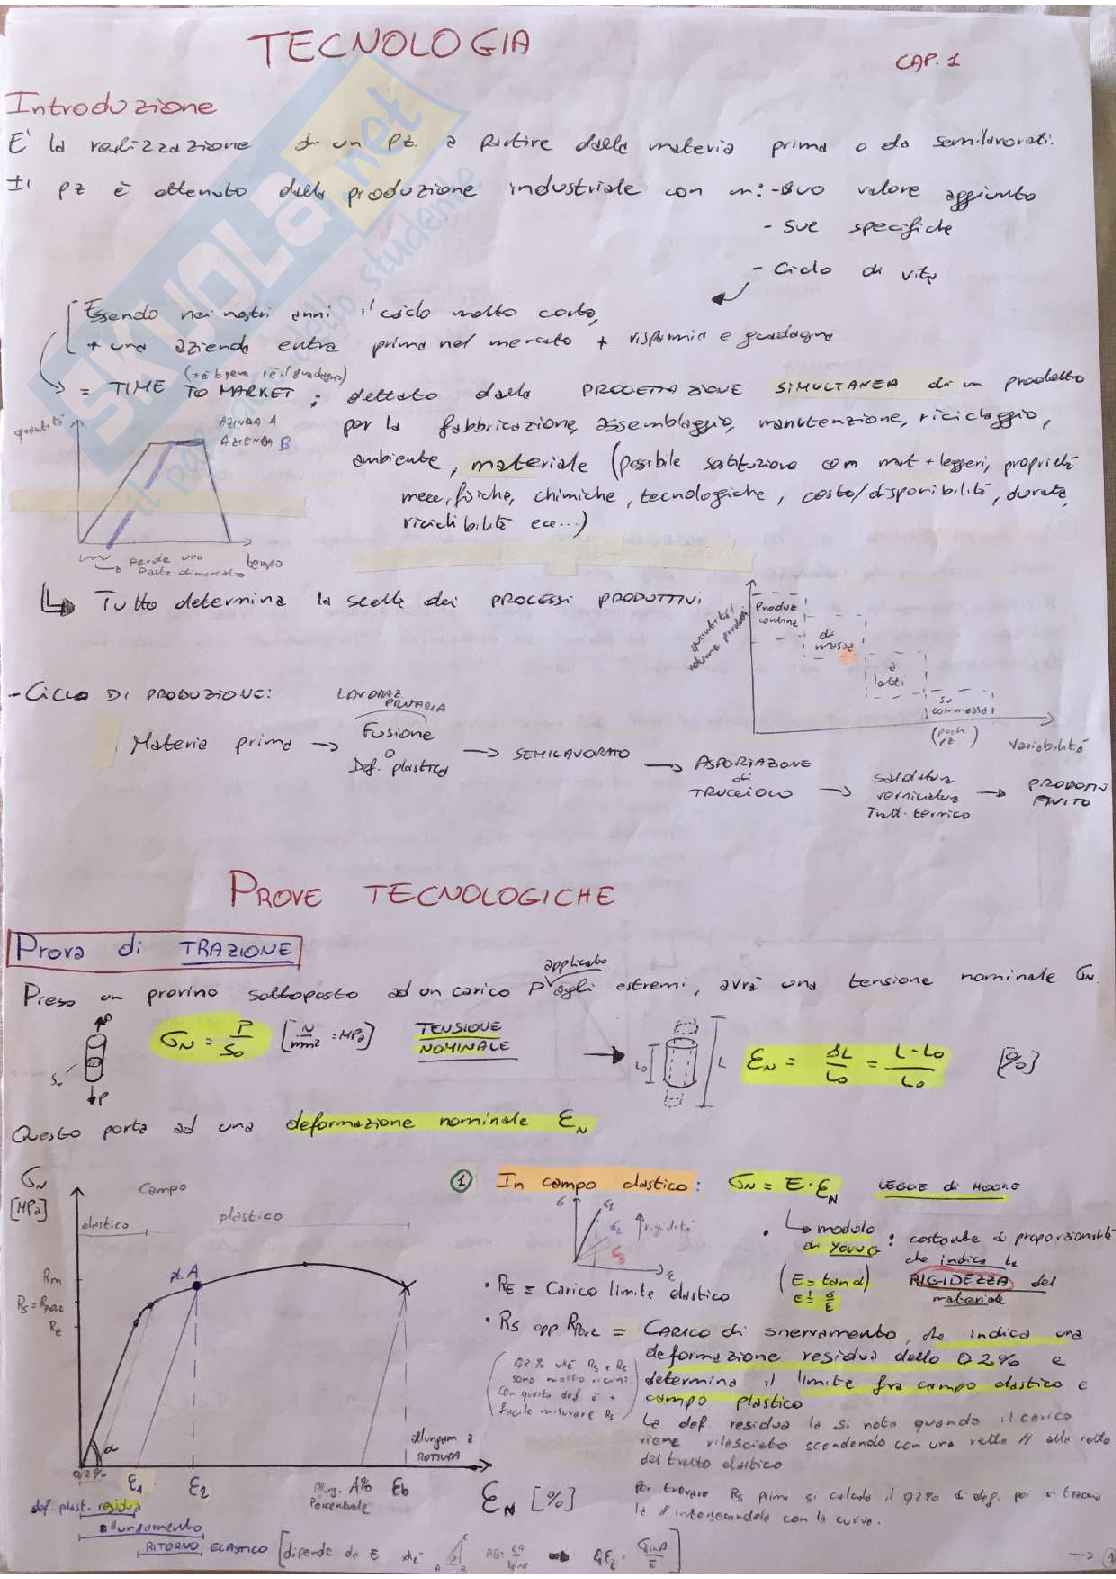 TECNOLOGIA
CAP. 1
Introduzione
E' la realizzazione di un pz a partire dalla materia prima o da semilavorati.
Il pz è ottenuto dalla produzione industriale con un: - suo valore aggiunto
- sue specifiche
- Ciclo di vita
Essendo nei nostri anni il ciclo molto corto,
+ una azienda entra prima nel mercato + risparmia e guadagna
= TIME TO MARKET; dettato dalla PROGETTAZIONE SIMULTANEA di un prodotto
per la fabbricazione, assemblaggio, manutenzione, riciclaggio,
ambiente, materiale (possibile sostituzione com mat + leggeri, proprietà
mecc, fisiche, chimiche, tecnologiche, costo/disponibilità, durata,
riciclibilità ecc...)
quantità
AZIENDA A
AZIENDA B
perde una
parte di mercato
tempo
Tutto determina la scelta dei PROCESSI PRODUTTIVI
quantità/
volume prodotti
Produz
continua
di
massa
a
lotti
su
commessa
(pochi
pz)
Variabilità
- CICLO DI PRODUZIONE:
LAVORAZ.
PRIMARIA
Materia prima → Fusione
o
Def. plastica
→ SEMILAVORATO
→ ASPORTAZIONE
di
TRUCIOLO
→ saldatura
verniciatura
Tratt. termico
→ PRODOTTO
FINITO
PROVE TECNOLOGICHE
Prova di TRAZIONE
applicato
Preso un provino sottoposto ad un carico P agli estremi, avrà una tensione nominale σN.
P
S0
P
σN = P/S0 [N/mm² = MPa] TENSIONE
NOMINALE
L0
L
εN = ΔL/L0 = L-L0/L0 [%]
Questo porta ad una deformazione nominale εN
σN
[MPa]
Campo
elastico
plastico
Rm
RE
pt. A
α
0,2%
ε1
ε2
allung. A%
Percentuale
εb
allungam a
ROTTURA
εN [%]
def. plast. residua
allungamento
RITORNO ELASTICO [dipende da E
1 In campo elastico: σN = E · εN LEGGE di HOOKE
σ
rigidità
ε
modulo
di YOUNG : costante di proporzionalità
che indica la
RIGIDEZZA del
materiale
(E = tan α)
• RE = Carico limite elastico
• RS opp = CARICO di snervamento, che indica una
deformazione residua dello 0.2% e
determina il limite fra campo elastico e
campo plastico
sono molto vicini.
Con questa def. è +
facile misurare RS
La def. residua la si nota quando il carico
viene rilasciato scendendo con una retta // alla retta
del tratto elastico
Per trovare RS prima si calcola il 0,2% di def. poi si traccia
la // intersecandola con la curva.
1
SKUOLA.net